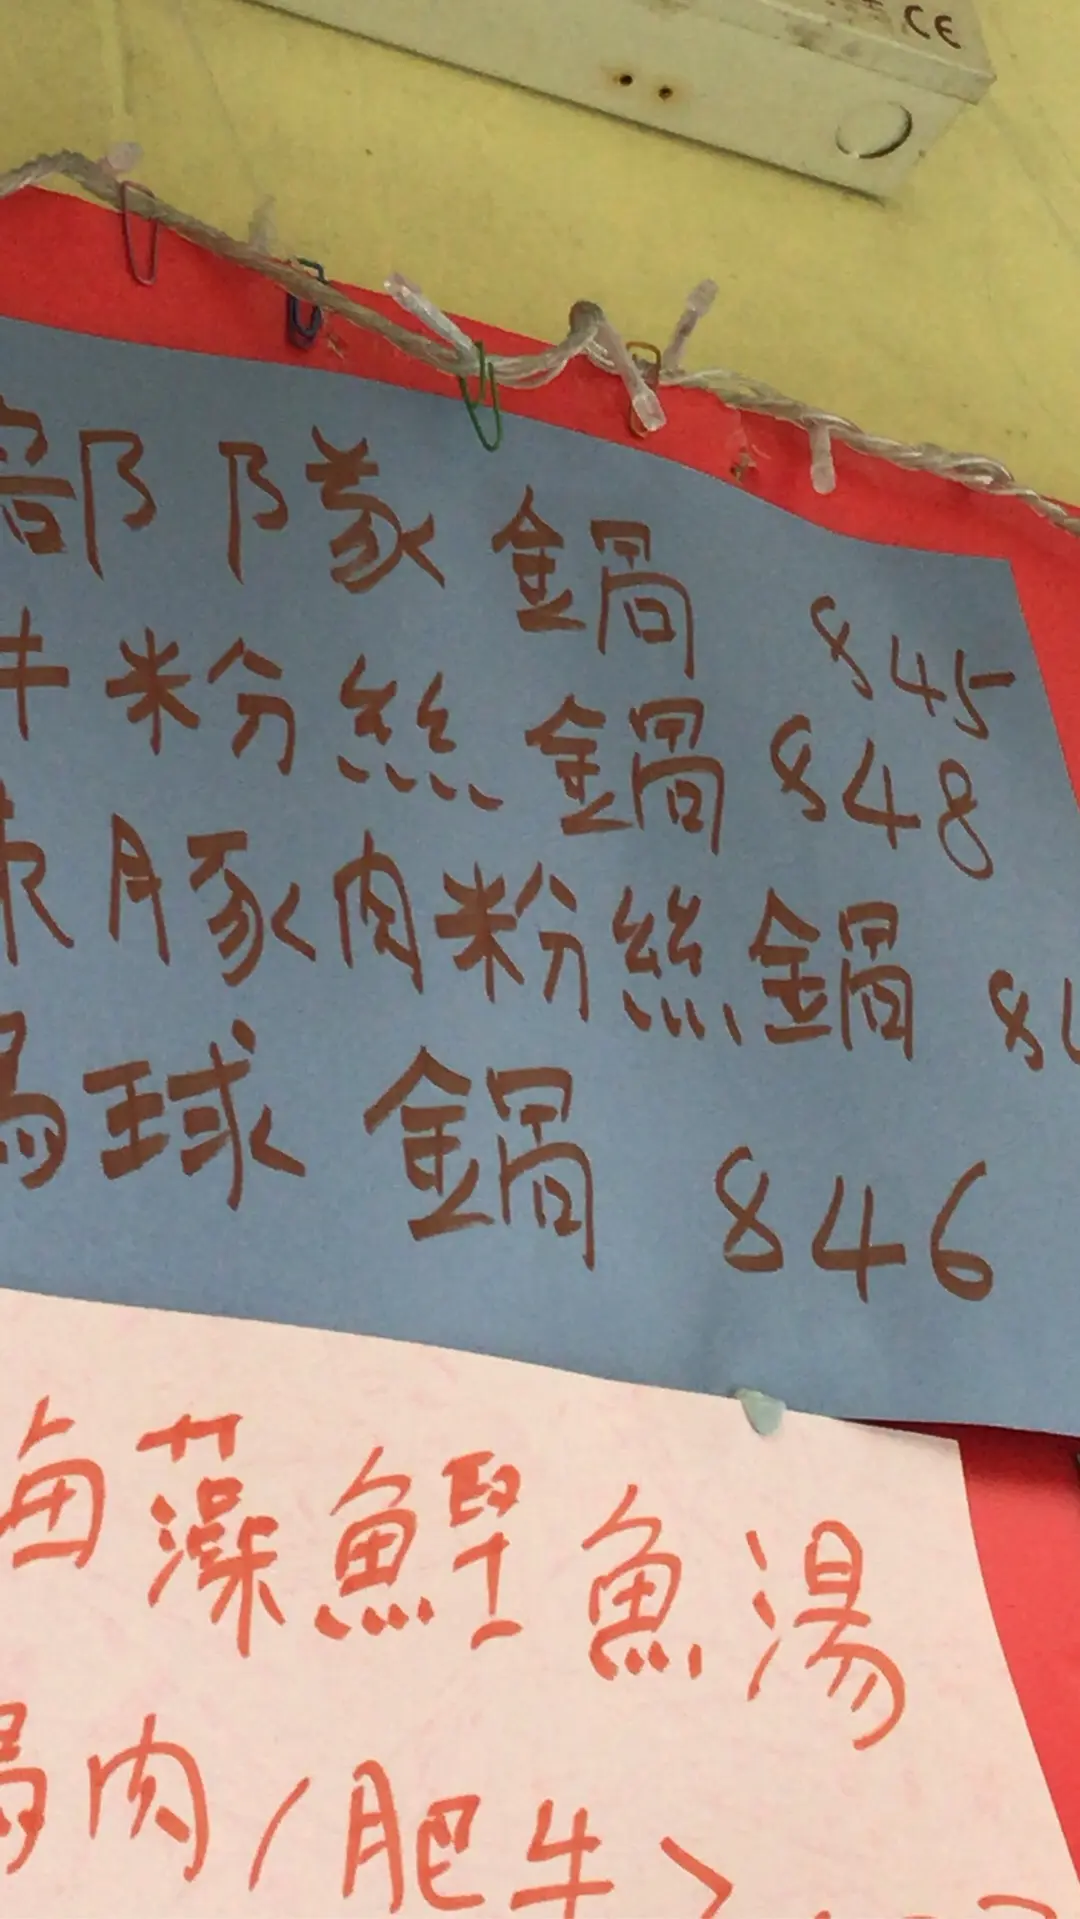 CE
部隊鍋 $45
牛粉絲鍋 $48
豚肉粉絲鍋 $4
球鍋 $46
海藻鰹魚湯
肉/肥牛>